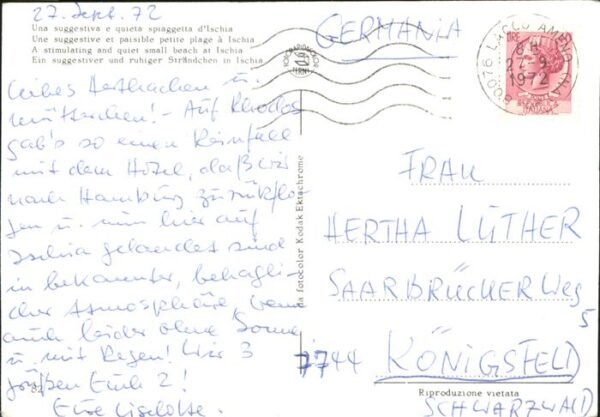 27. Sept. 72
Una suggestiva e quieta spiaggetta d'Ischia
Une suggestive et paisible petite plage à Ischia
A stimulating and quiet small beach at Ischia
Ein suggestiver und ruhiger Strändchen in Ischia
Liebes Herthachen u.
Mütterchen! - Auf Rhodos
gab's so einen Reinfall
mit dem Hotel, daß wir
nach Hamburg zurückflo-
gen u. nun hier auf
Ischia gelandet sind
in bekannter, behagli-
cher Atmosphäre, wenn
auch leider ohne Sonne
u. mit Regen! Wir 3
grüßen Euch 2!
Eure Liselotte.
82
da fotocolor Kodak Ektachrome
GERMANIA
80076 LACCO AMENO (NA)
27-9
1972
LIRE
FRAU
HERTHA LÜTHER
SAARBRÜCKER Weg
5
7744 KÖNIGSFELD
Riproduzione vietata
SCHWARZWALD